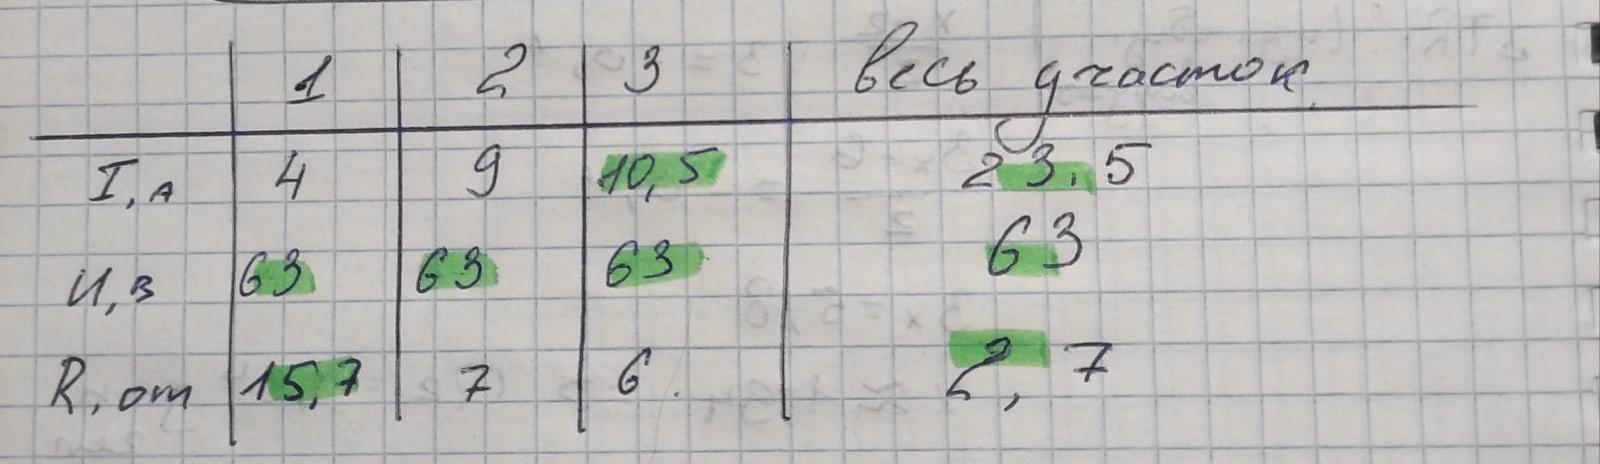 1 2 3 весь участок
I, А 4 9 10,5 23,5
U, в 63 63 63 63
R, от 15,7 7 6. 2,7